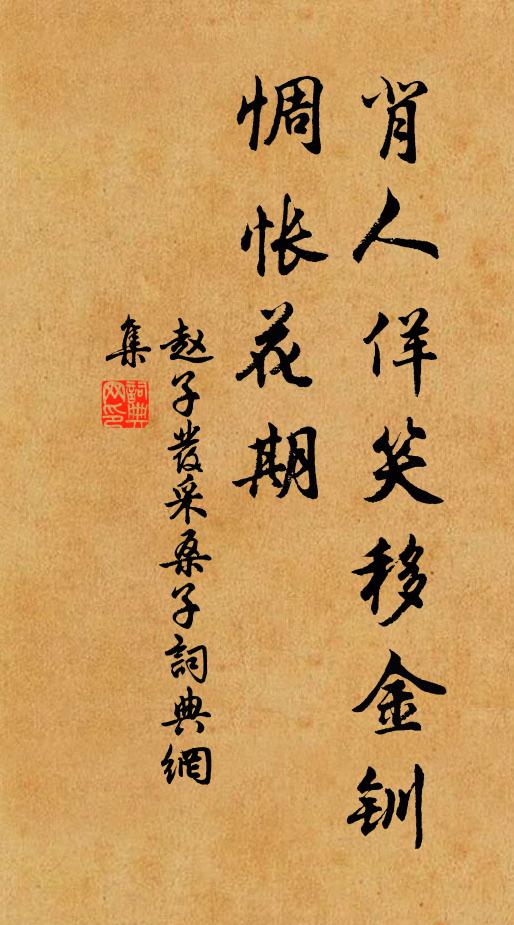 背人佯笑移金钏
惆怅花期
赵子發采桑子詞典網
集
詞典
网印